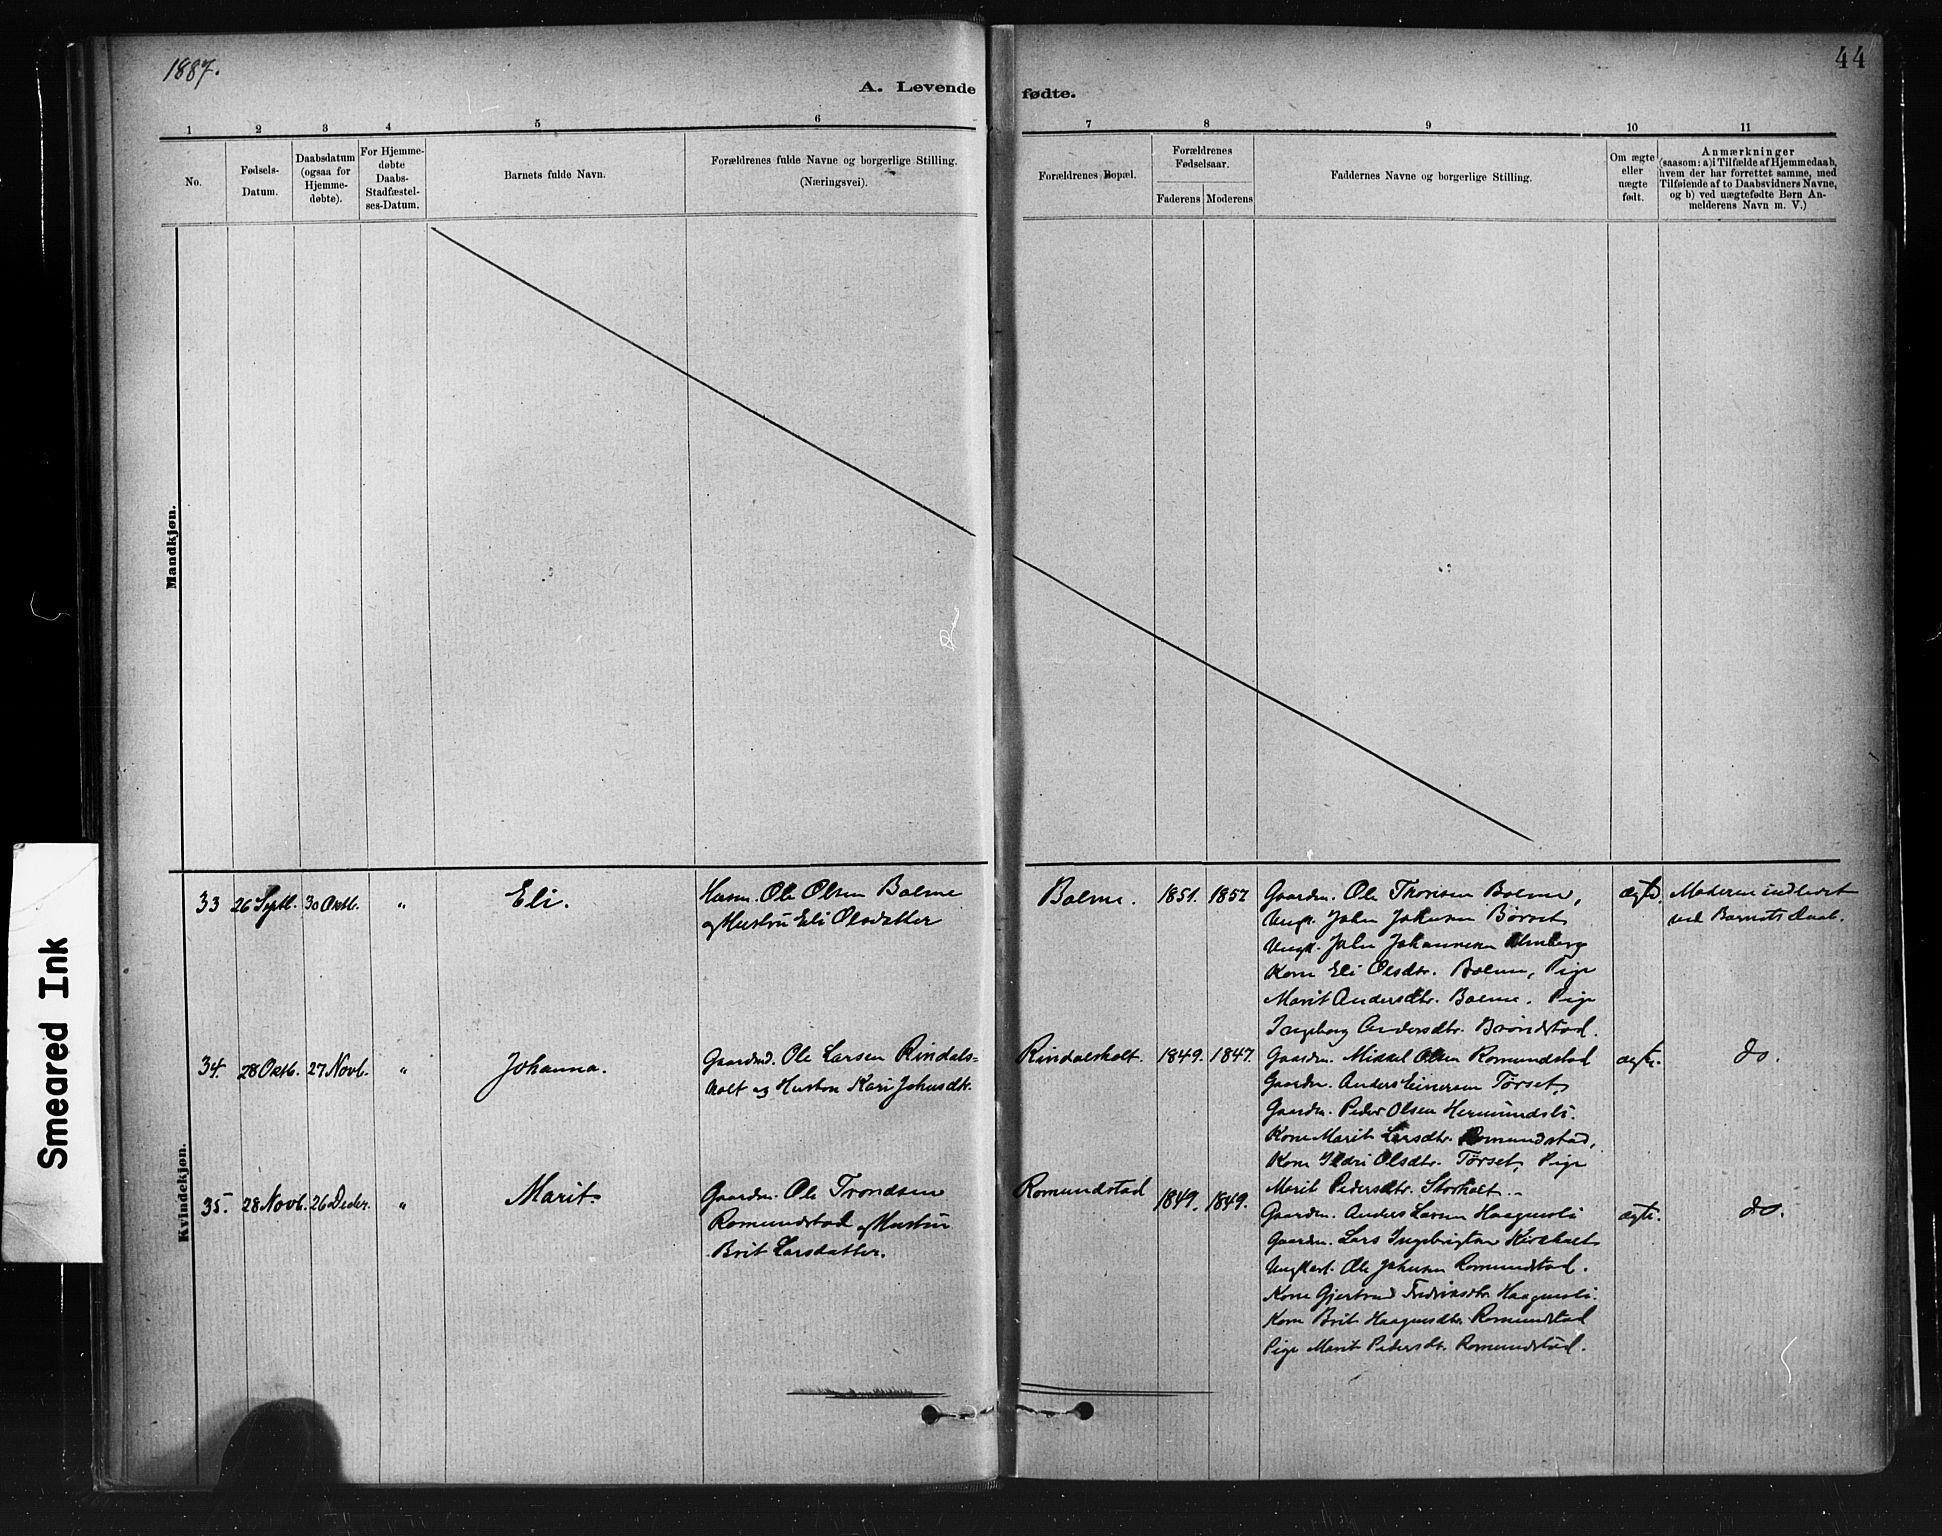 1887.
44
A. Levende fødte.
1 2 3 4 5 6 7 8 9 10 11
No.
Fødsels-
Datum.
Daabsdatum
(ogsaa for
Hjemme-
døbte).
For Hjemme-
døbte
Daabs-
Stadfæstel-
ses-Datum.
Barnets fulde Navn.
Forældrenes fulde Navne og borgerlige Stilling.
(Næringsvei).
Forældrenes Bopæl.
Forældrenes
Fødselsaar.
Faderens Moderens
Faddernes Navne og borgerlige Stilling.
Om ægte
eller
uægte
født.
Anmærkninger
(saasom: a) i Tilfælde af Hjemmedaab,
hvem der har forrettet samme, med
Tilføiende af to Daabsvidners Navne,
og b) ved uægtefødte Børn An-
melderens Navn m. V.)
Mandkjøn.
Kvindekjøn.
33 26 Septb. 30 Oktb. " Eli.
Husm. Ole Olsen Bolme
og Hustru Eli Olsdatter
Bolme. 1851. 1852
Gaardm. Ole Thonsen Bolme,
Ungk. John Johnsen Børset
Ungk. John Johannesen
Kone Eli Olsdtr. Bolme, Pige
Marit Andersdtr. Bolme. Pige
Ingeborg Andersdtr. Brøndstad.
ægte. Moderen indledet
ved Barnets Daab.
34. 28 Oktb. 27 Novb. " Johanna.
Gaardmd. Ole Larsen Rindals-
holt og Hustru Kari Johnsdtr.
Rindalsholt. 1849. 1847.
Gaardm. Mikkel Olsen Romundstad
Gaardm. Anders Einersen Tørset,
Gaardm. Peder Olsen Hermundsli.
Kone Marit Larsdtr. Romundstad,
Kone Ildri Olsdtr. Tørset, Pige
Marit Pedersdtr. Storholt.
ægte. do.
35. 28 Novb. 26 Decbr. " Marit
Gaardm. Ole Trondsen
Romundstad og Hustru
Brit Larsdatter.
Romundstad 1849. 1849.
Gaardm. Anders Larsen Haagensli
Gaardm. Lars Ingebrigtsen
Ungkarl. Ole Johnsen Romundstad.
Kone Gjertrud Fredriksdtr. Haagensli.
Kone Brit Haagensdtr. Romundstad
Pige Marit Pedersdtr. Romundstad.
ægte. do.
Smeared Ink